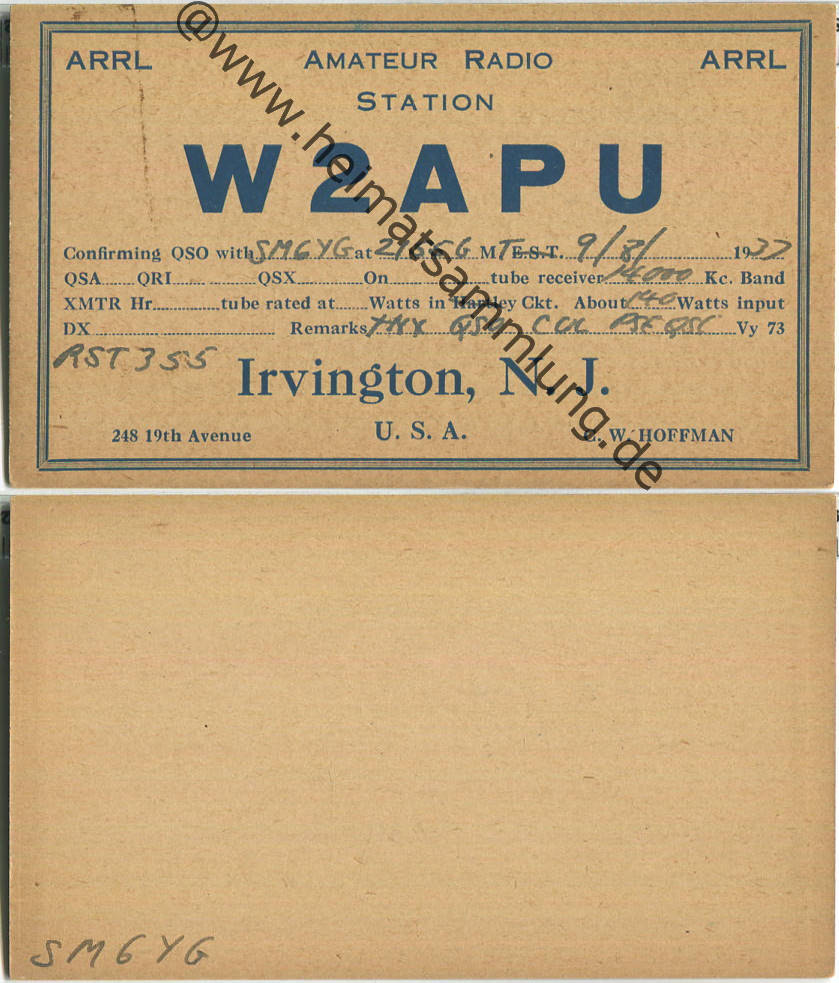 ARRL AMATEUR RADIO ARRL
STATION
W2APU
Confirming QSO with SM6YG at G M T E.S.T. 9/8/ 1937
QSA QRI QSX On tube receiver 14000 Kc. Band
XMTR Hr tube rated at Watts in Hartley Ckt. About 140 Watts input
DX Remarks TNX QSO CUL PSE QSL Vy 73
RST 355
Irvington, N. J.
248 19th Avenue U. S. A. W. HOFFMAN
@www.heimatsammlung.de
SM6YG